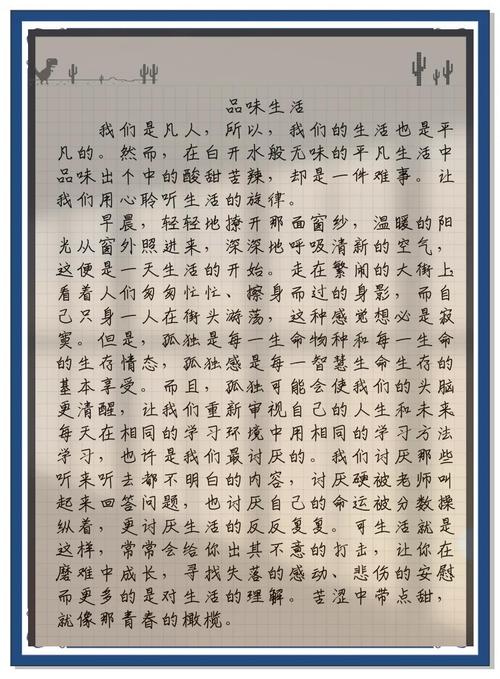 品味生活
我们是凡人，所以，我们的生活也是平
凡的。然而，在白开水般无味的平凡生活中
品味出个中的酸甜苦辣，却是一件难事。让
我们用心聆听生活的旋律。
早晨，轻轻地撩开那面窗纱，温暖的阳
光从窗外照进来，深深地呼吸清新的空气，
这便是一天生活的开始。走在繁闹的大街上
看着人们匆匆忙忙、擦身而过的身影，而自
己只身一人在街头游荡，这种感觉想必是寂
寞。但是，孤独是每一生命物种和每一生命
的生存情态，孤独感是每一智慧生命生存的
基本享受。而且，孤独可能会使我们的头脑
更清醒，让我们重新审视自己的人生和未来
每天在相同的学习环境中用相同的学习方法
学习，也许是我们最讨厌的。我们讨厌那些
听来听去都不明白的内容，讨厌硬被老师叫
起来回答问题，也讨厌自己的命运被分数操
纵着，更讨厌生活的反反复复。可生活就是
这样，常常会给你出其不意的打击，让你在
磨难中成长，寻找失落的感动、悲伤的安慰
而更多的是对生活的理解。苦涩中带点甜，
就像那青春的橄榄。